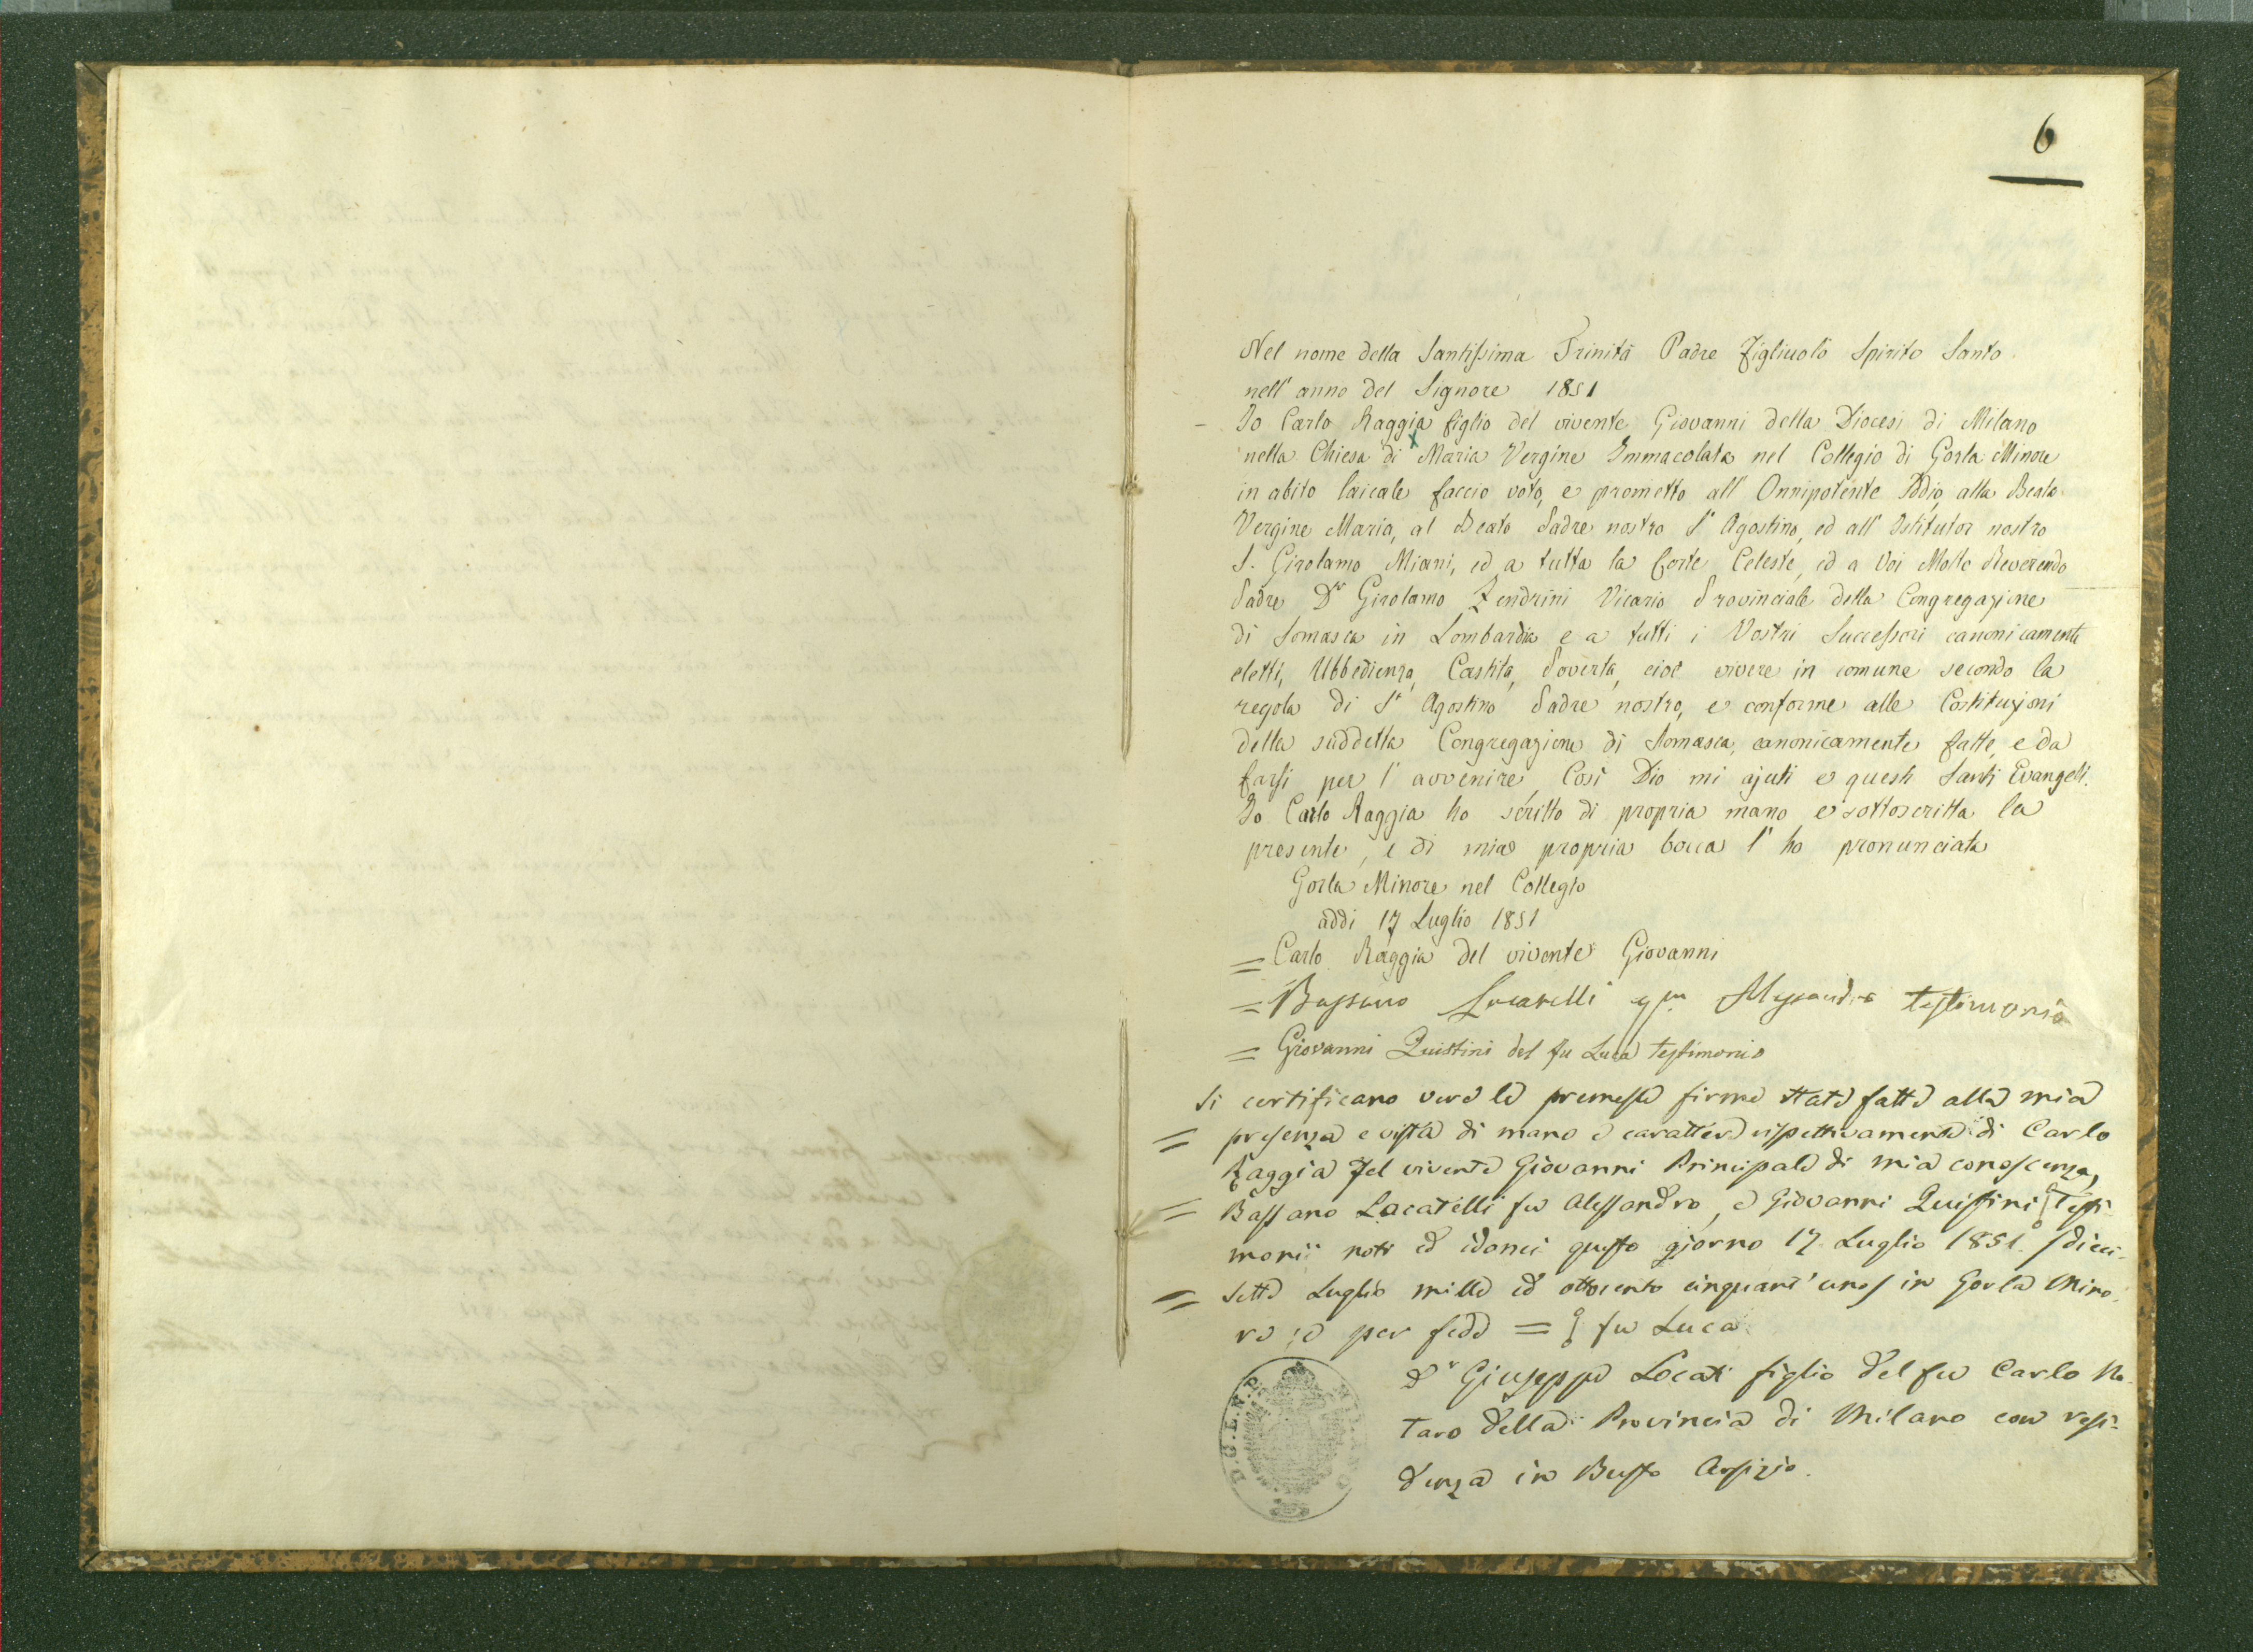 6
Nel nome della Santissima Trinità Padre Figliuolo Spirito Santo
nell' anno del Signore 1851
Io Carlo Raggia figlio del vivente Giovanni della Diocesi di Milano
nella Chiesa di Maria Vergine Immacolata nel Collegio di Gorla Minore
in abito laicale faccio voto, e prometto all' Onnipotente Iddio, alla Beata
Vergine Maria, al Beato Padre nostro S.t Agostino, ed all' Istitutor nostro
S. Girolamo Miani, ed a tutta la Corte Celeste, ed a Voi Molto Reverendo
Padre Dn Girolamo Zendrini Vicario Provinciale della Congregazione
di Somasca in Lombardia e a tutti i Vostri Successori canonicamente
eletti, Ubbedienza, Castità, Povertà, cioè vivere in comune secondo la
regola di S.t Agostino Padre nostro, e conforme alle Costituzioni
della suddetta Congregazione di Somasca, canonicamente fatte, e da
farsi per l' avvenire, Così Dio mi ajuti e questi Santi Evangeli.
Io Carlo Raggia ho scritto di propria mano e sottoscritta la
presente, e di mia propria bocca l' ho pronunciata
Gorla Minore nel Collegio
addi 17 Luglio 1851
= Carlo Raggia del vivente Giovanni
= Bassano Locatelli qm Alessandro testimonio
= Giovanni Quistini del fu Luca testimonio
Si certificano vere le premesse firme state fatte alla mia
= presenza e vista di mano e carattere rispettivamente di Carlo
Raggia del vivente Giovanni Principale di mia conoscenza,
= Bassano Locatelli fu Alessandro, e Giovanni Quistini Testi-
monii noti ed idonei questo giorno 17 Luglio 1851. /dieci-
= sette Luglio mille ed ottocento cinquant'uno/ in Gorla Mino-
re; e per fede = fu Luca
Dr Giuseppe Locati figlio del fu Carlo No-
taro della Provincia di Milano con resi-
denza in Busto Arsizio.
D.G.L.N.P. MILANO